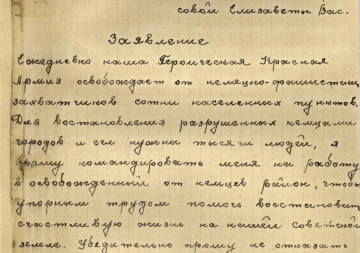 совой Елизаветы Вас.
Заявление
Ежедневно наша Героическая Красная
Армия освобождает от немецко-фашистских
захватчиков сотни населенных пунктов.
Для востановления разрушенных немцами
городов и сел нужны тысячи людей, я
прошу командировать меня на работу
в освобожденный от немцев район, чтобы
упорным трудом помочь восстановить
счастливую жизнь на нашей советской
земле. Убедительно прошу не отказать